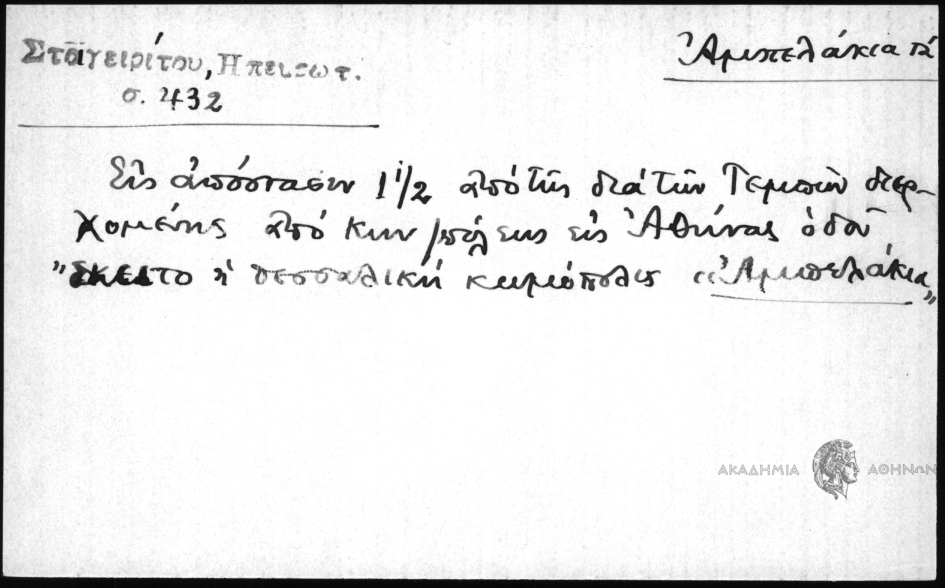 Σταγειρίτου, Ηπειρωτ.
σ. 432
Ἀμπελάκια τὰ
Εἰς ἀπόστασιν 1 1/2 ἀπὸ τῆς διὰ τῶν Τεμπῶν διερ-
χομένης ἀπὸ Κων/πόλεως εἰς Ἀθήνας ὁδοῦ
"ἔκειτο ἡ θεσσαλικὴ κωμόπολις "Ἀμπελάκια"
ΑΚΑΔΗΜΙΑ ΑΘΗΝΩΝ